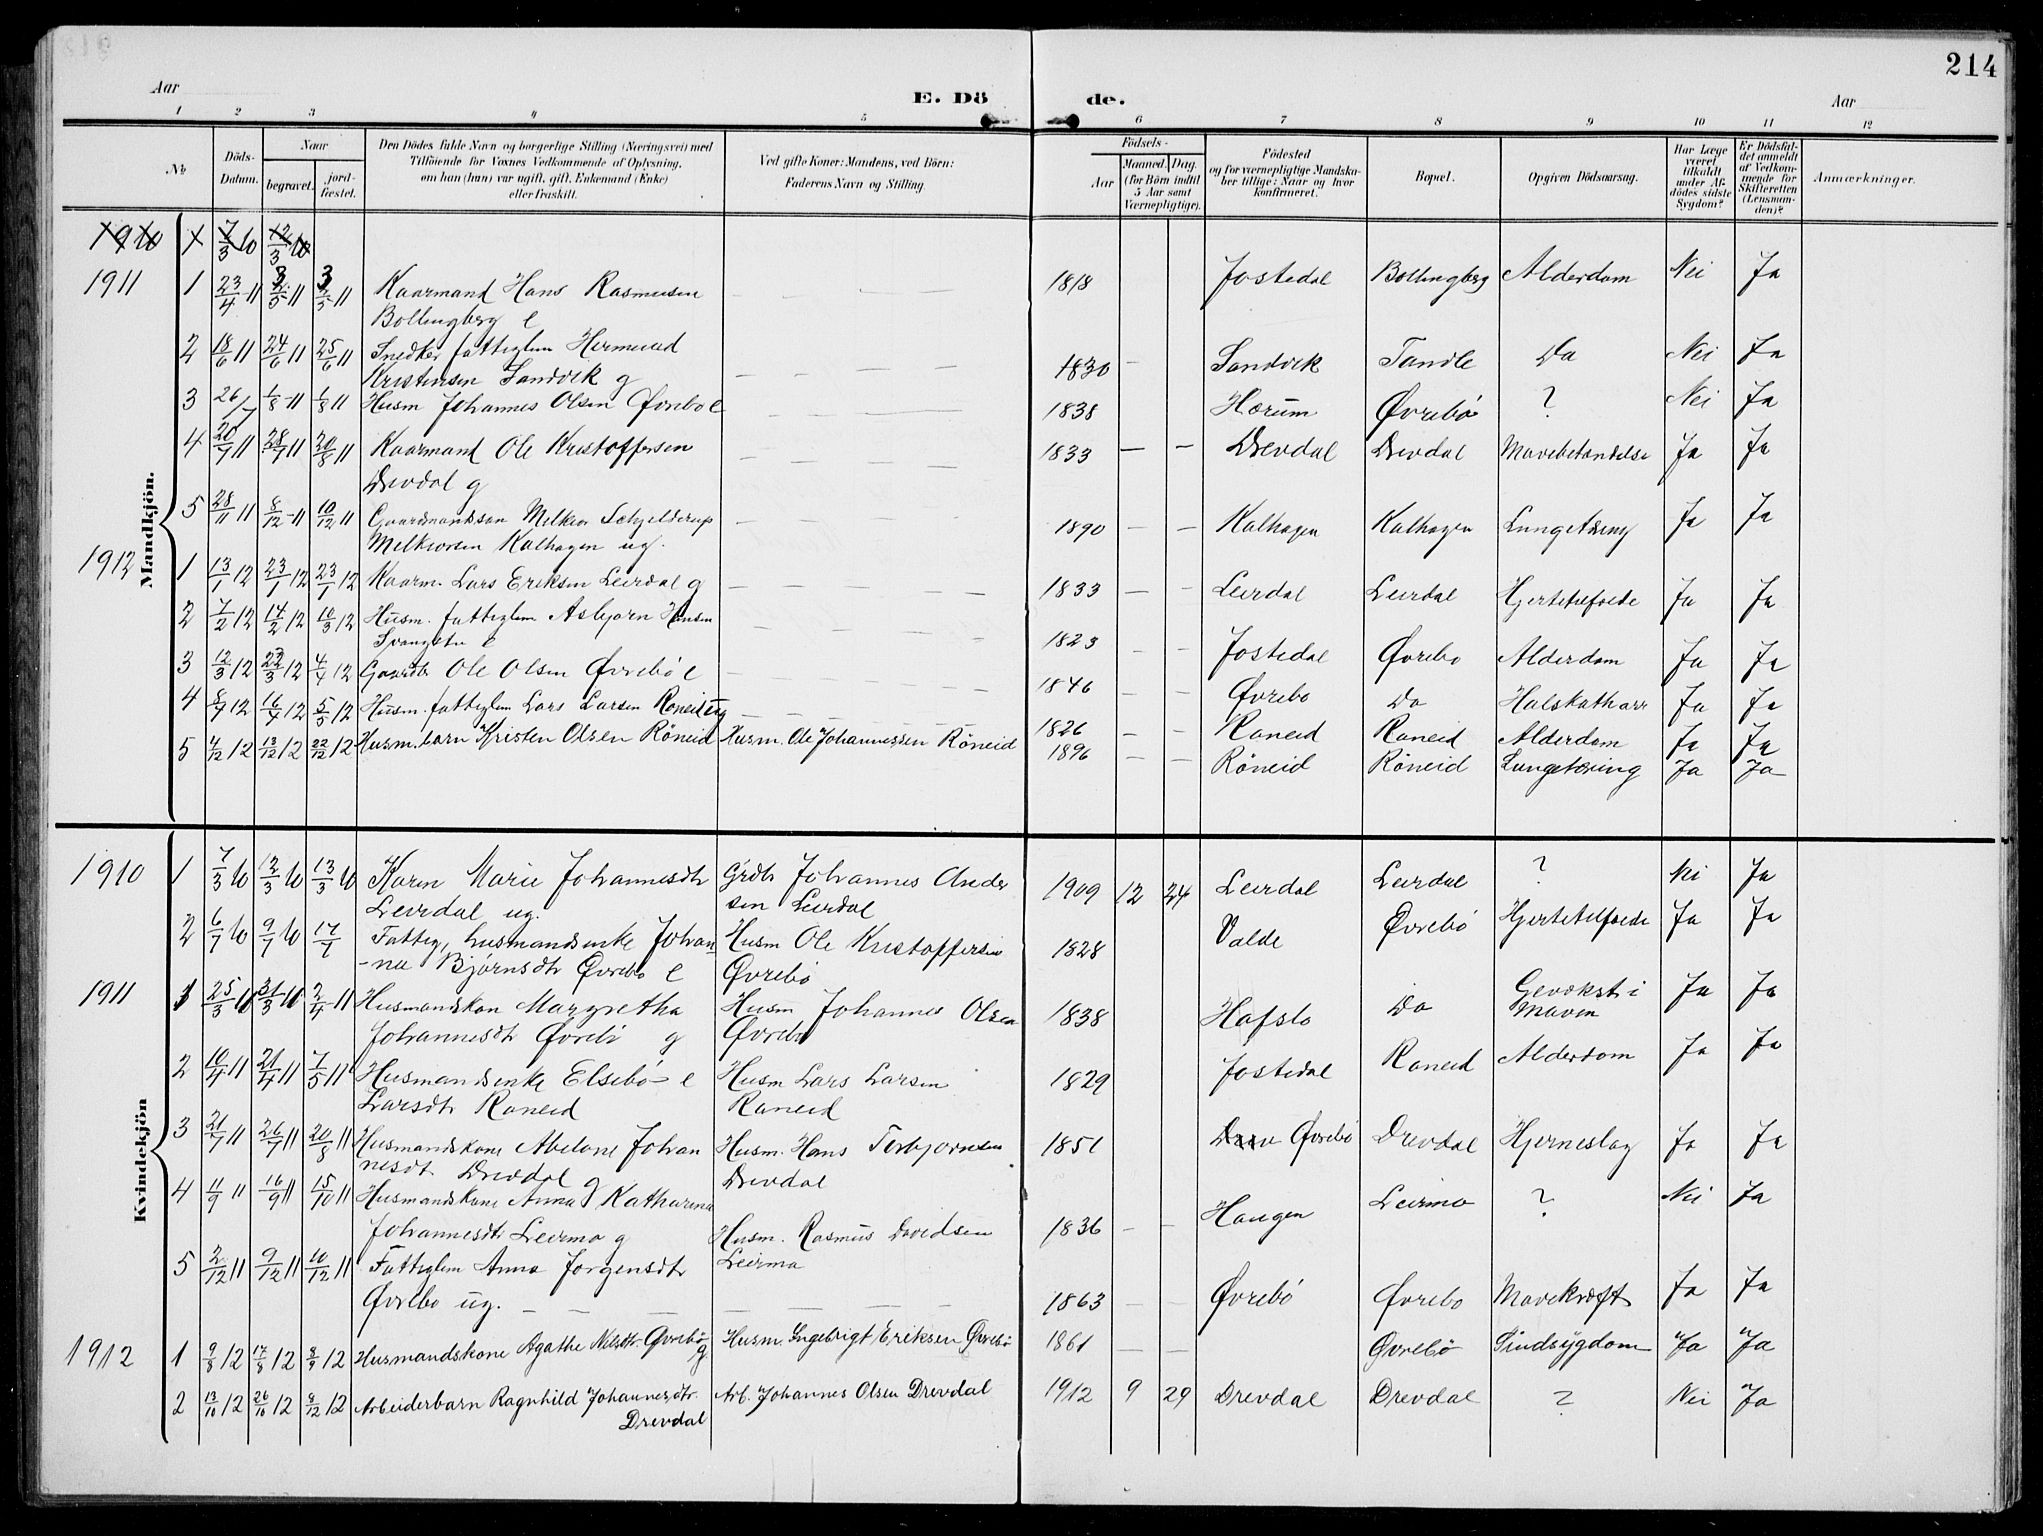 214
Aar
E. Dö
de.
Aar
1 2 3 4 5 6 7 8 9 10 11 12
No
Döds-Datum.
Naar
begravet.
jord-fæstet.
Den Dödes fulde Navn og borgerlige Stilling (Næringsvei) med
Tilföiende for Voxnes Vedkommende af Oplysning,
om han (hun) var ugift, gift, Enkemand (Enke)
eller fraskilt.
Ved gifte Koner: Mandens, ved Börn:
Faderens Navn og Stilling.
Födsels-
Aar
Maaned. Dag.
(for Börn indtil
5 Aar samt
Værnepligtige).
Födested
og for værnepligtige Mandska-
ber tillige: Naar og hvor
konfirmeret.
Bopæl.
Opgiven Dödsaarsag.
Har Læge
været
tilkaldt
under Af-
dödes sidste
Sygdom?
Er Dödsfal-
det anmeldt
af Vedkom-
mende for
Skifteretten
(Lensman-
den)?
Anmærkninger.
Mandkjön.
1910 1 7/3 10 12/3 10
1911 1 23/4 11 3/5 11 3/5 11 Kaarmand Hans Rasmusen 1818 Jostedal Bollingberg Alderdom Nei Ja
Bollingberg e
2 18/6 11 24/6 11 25/6 11 Snedker fattiglem Hermund 1830 Sandvik Tandle Do Nei Ja
Kristensen Sandvik g
3 26/7 1/8 11 1/8 11 Husm Johannes Olsen Øvrebo e 1838 Hærum Øvrebö ? Nei Ja
4 20/7 11 28/7 11 20/8 11 Kaarmand Ole Kristoffersen 1833 Drevdal Drevdal Mavebetændelse Ja Ja
Drevdal g
5 28/11 11 8/12 11 10/12 11 Gaardmandssøn Melkior Schjelderup 1890 Kalhagen Kalhagen Lungetæring Ja Ja
Melkiorsen Kalhagen ug.
1912 1 13/1 12 23/1 12 23/1 12 Kaarm. Lars Eriksen Leirdal g 1833 Leirdal Leirdal Hjertelefeide Ja Ja
2 7/2 12 14/2 12 10/3 12 Husm. fattiglem Asbjørn Hansen 1823 Jostedal Øvrebo Alderdom Ja Ja
3 12/3 12 22/3 12 4/4 12 Gaardbr Ole Olsen Øvrebö e 1846 Øvrebo Do Halskatharr Ja Ja
4 8/4 12 16/4 12 5/5 12 Husm. fattiglem Lars Larsen Røneid ug 1826 Røneid Røneid Alderdom Ja Ja
5 4/12 12 13/12 12 22/12 12 Husm. barn Kristen Olsen Röneid Husm. Ole Johannessen Röneid 1896 Röneid Röneid Lungetæring Ja Ja
Kvindekjön
1910 1 7/3 10 12/3 10 13/3 10 Karen Marie Johannesdtr Grdbr Johannes Ander 1909 12 24 Leirdal Leirdal ? Nei Ja
Leirdal ug. sen Leirdal
2 6/7 10 9/7 10 17/7 Fattig, husmandsenke Johan Husm Ole Kristoffersen 1828 Valde Øvrebö Hjertefeilfeide Ja Ja
-ne Björnsdtr Øvrebö e Øvrebö
1911 1 25/3 11 31/3 11 2/4 11 Husmandskon Margretha Husm Johannes Olsen 1838 Hafslo Do Gevækst i Maven Ja Ja
Johannesdtr Øvrebö g Øvrebö
2 10/4 11 21/4 11 7/5 11 Husmandsenke Elsebö e Husm Lars Larsen 1829 Jostedal Røneid Alderdom Ja Ja
Larsdtr Røneid Røneid
3 21/7 11 26/7 11 20/8 11 Husmandskone Abelone Johan Husm. Hans Torbjørnsen 1851 Drev Øvrebö Drevdal Hjerneslag Ja Ja
nesdt Drevdal g Drevdal
4 11/9 11 16/9 11 15/10 11 Husmandskone Anna Katharina Husm. Rasmus Davidsen 1836 Haugen Leirmo ? Nei Ja
Johannesdtr Leirmo g Leirmo
5 2/12 11 9/12 11 10/12 11 Fattiglem Anna Jørgensdtr 1863 Øvrebö Øvrebo Mavekræft Ja Ja
Øvrebo ug.
1912 1 9/8 12 17/8 12 8/9 12 Husmandskone Agathe Nilsdtr. Øvrebö g Husm. Ingebrigt Eriksen Øvrebö 1861 Øvrebö Sindsygdom Ja Ja
2 13/10 12 26/10 12 8/12 12 Arbeiderbarn Ragnhild Johannesdtr. Arb. Johannes Olsen Drevdal 1912 9 29 Drevdal Drevdal ? Nei Ja
Drevdal